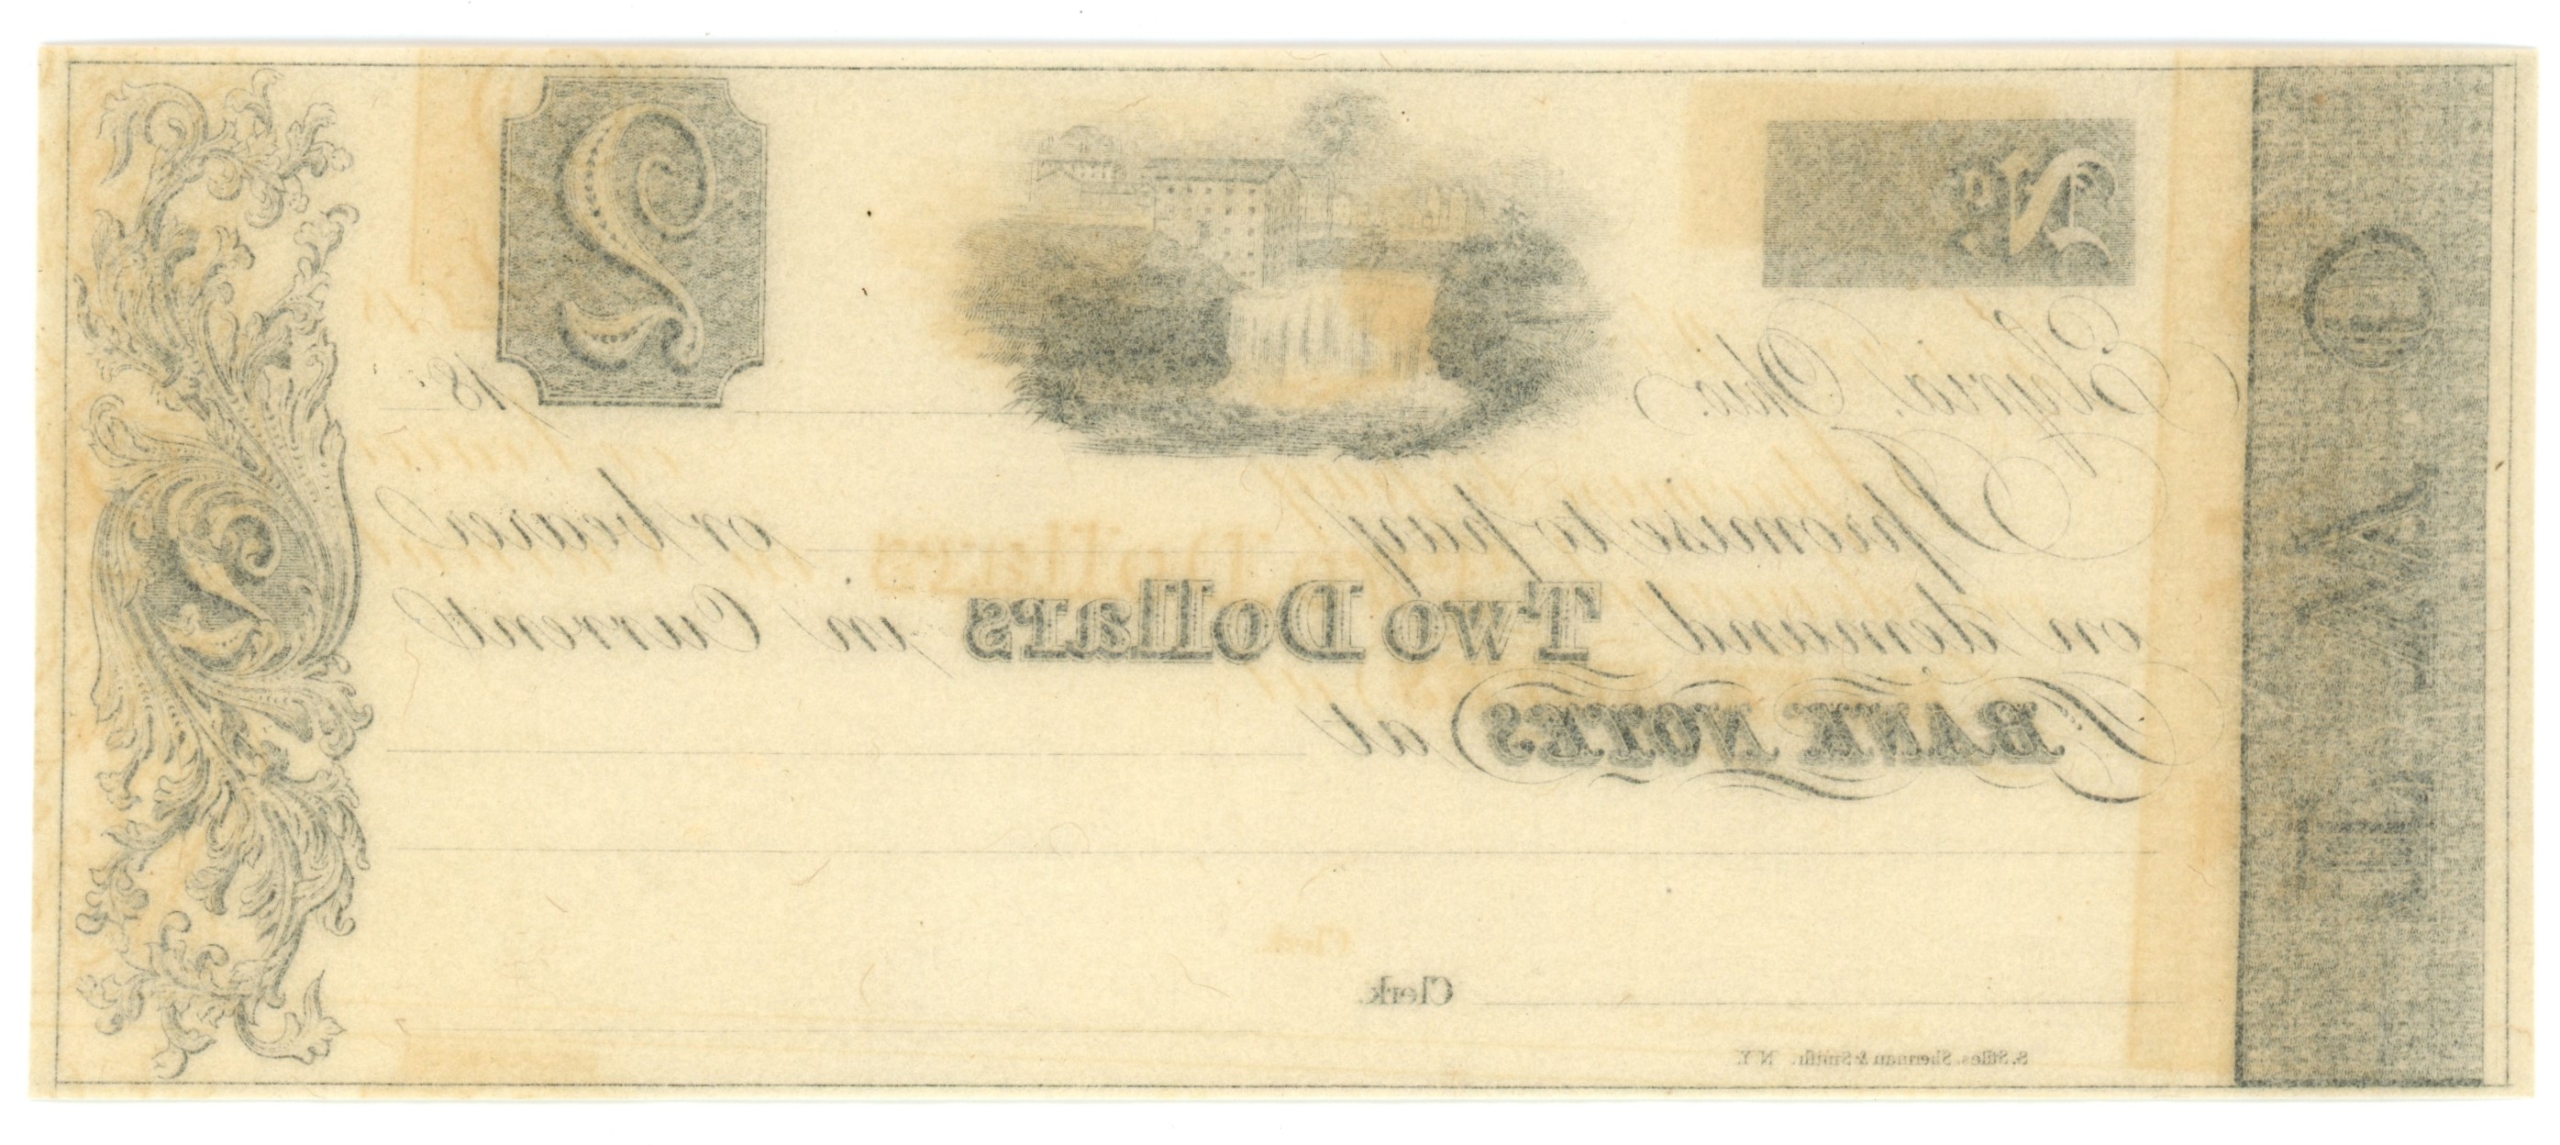 TWO
No.
2
Elyria, Ohio. 18
I promise to pay or bearer
on demand Two Dollars in Current
BANK NOTES at
2
Clerk.
S. Stiles, Sherman & Smith. N.Y.